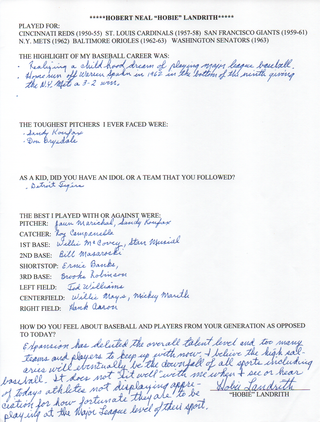 *****HOBERT NEAL "HOBIE" LANDRITH*****
PLAYED FOR:
CINCINNATI REDS (1950-55) ST. LOUIS CARDINALS (1957-58) SAN FRANCISCO GIANTS (1959-61)
N.Y. METS (1962) BALTIMORE ORIOLES (1962-63) WASHINGTON SENATORS (1963)
THE HIGHLIGHT OF MY BASEBALL CAREER WAS:
Realizing a child hood dream of playing major league baseball.
Home run off Warren Spahn in 1962 in the bottom of 9th inning giving
the N.Y. Mets a 3-2 win.
THE TOUGHEST PITCHERS I EVER FACED WERE:
Sandy Koufax
Don Drysdale
AS A KID, DID YOU HAVE AN IDOL OR A TEAM THAT YOU FOLLOWED?
Detroit Tigers
THE BEST I PLAYED WITH OR AGAINST WERE:
PITCHER: Juan Marichal, Sandy Koufax
CATCHER: Roy Campanella
1ST BASE: Willie McCovey, Stan Musial
2ND BASE: Bill Mazeroski
SHORTSTOP: Ernie Banks,
3RD BASE: Brooks Robinson
LEFT FIELD: Ted Williams
CENTERFIELD: Willie Mays, Mickey Mantle
RIGHT FIELD: Hank Aaron
HOW DO YOU FEEL ABOUT BASEBALL AND PLAYERS FROM YOUR GENERATION AS OPPOSED
TO TODAY?
Expansion has deluted the overall talent level and too many
teams and players to keep up with now. I believe the high sal-
aries will eventually be the downfall of all sports including
baseball. It does not sit well with me when I see or hear
of todays athletes not displaying appre-
ciation for how fortunate they are to be
playing at the Major League level of their sport.
Hobie Landrith
"HOBIE" LANDRITH